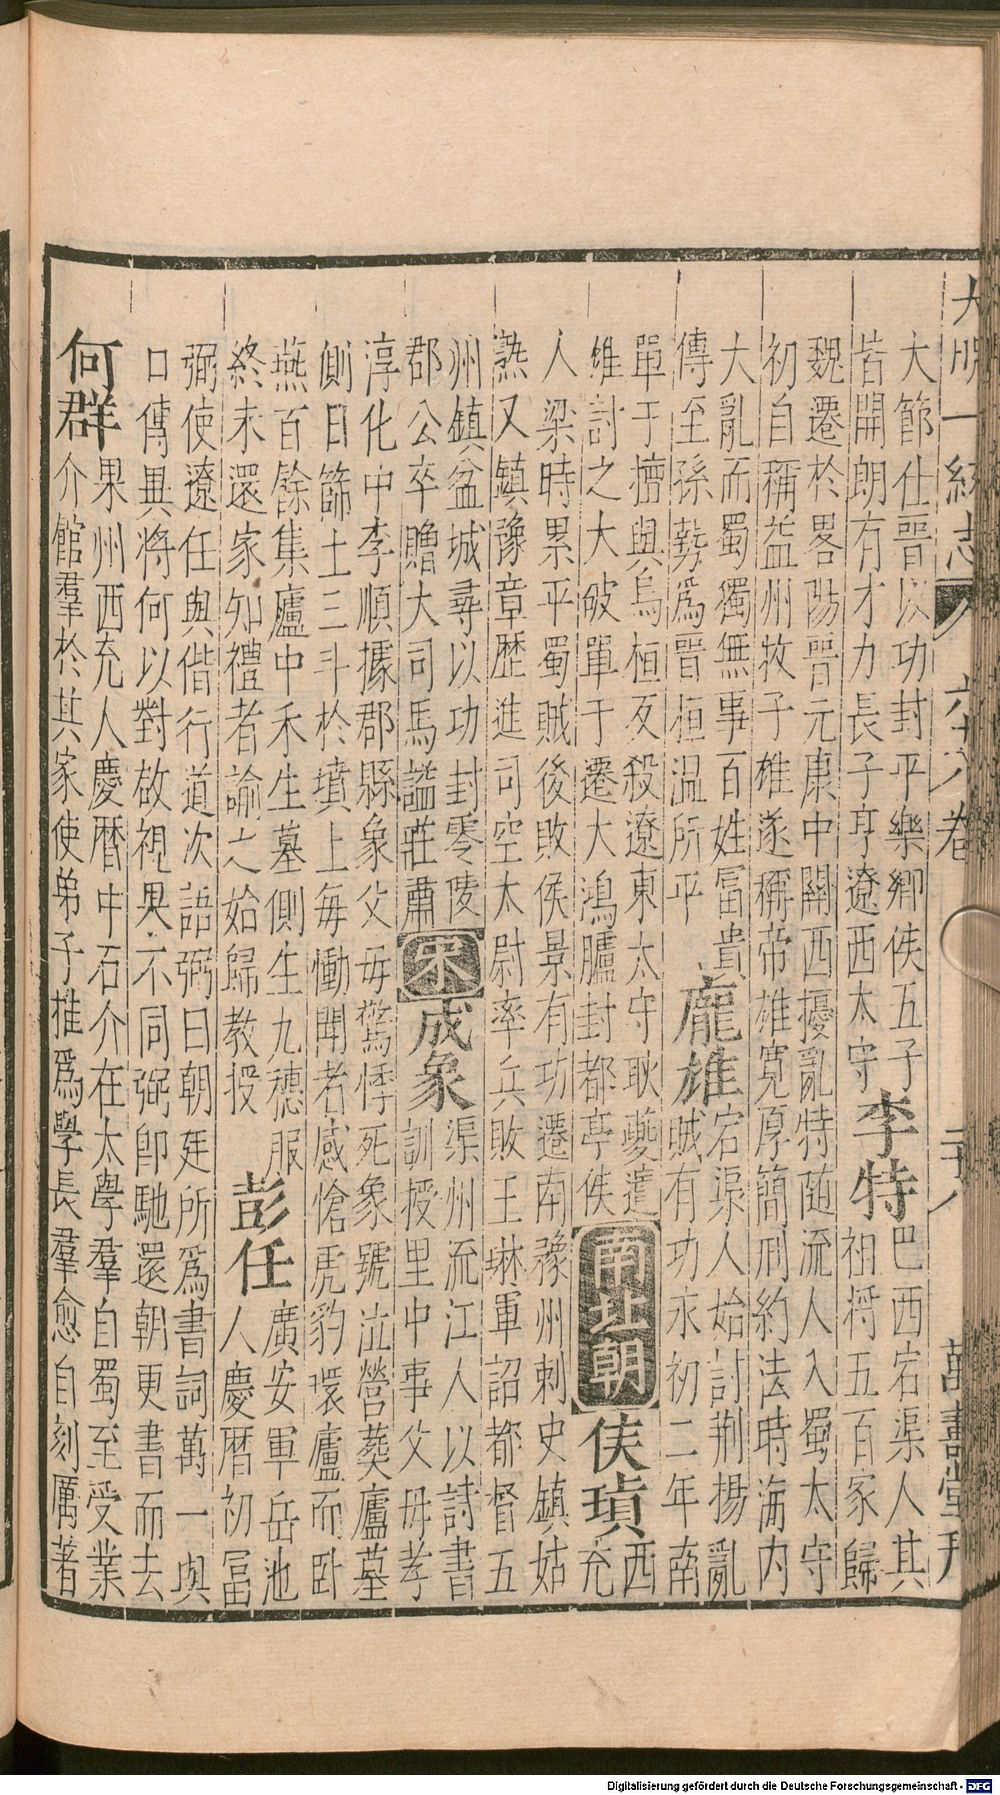 大明一統志 六十八卷 二十八 萬壽堂刋
大節仕晉以功封平樂鄉侯五子
皆開朗有才力長子玝遼西太守
李特
巴西宕渠人其
祖将五百家歸
魏遷於畧陽晉元康中關西擾亂特随流人入蜀太守
初自稱益州牧子雄遂稱帝雄寛厚簡刑約法時海内
大亂而蜀獨無事百姓冨貴
傳至孫勢爲晉桓温所平
龐雄
宕渠人始討荆揚亂
賊有功永初二年南
單于擅與烏桓反殺遼東太守耿夔遣
雄討之大破單于遷大鴻臚封都亭侯
南北朝
侯瑱
西
充
人梁時累平蜀賊後敗侯景有功遷南豫州刺史鎮姑
熟又鎮豫章歷進司空太尉率兵敗王琳軍詔都督五
州鎮盆城尋以功封零陵
郡公卒贈大司馬謚莊肅
宋
成象
渠州流江人以詩書
訓授里中事父母孝
淳化中李順據郡縣象父母驚悸死象號泣營葬廬墓
側日篩土三斗於墳上毎慟聞者感愴虎豹環廬而卧
燕百餘集廬中禾生墓側生九穗服
終未還家知禮者諭之始歸教授
彭任
廣安軍岳池
人慶曆初冨
弼使遼任與偕行道次語弼曰朝廷所爲書詞萬一與
口傳異将何以對啟視果不同弼卽馳還朝更書而去
何群
果州西充人慶曆中石介在太學羣自蜀至受業
介館羣於其家使弟子推爲學長羣愈自刻厲著
Digitalisierung gefördert durch die Deutsche Forschungsgemeinschaft - DFG